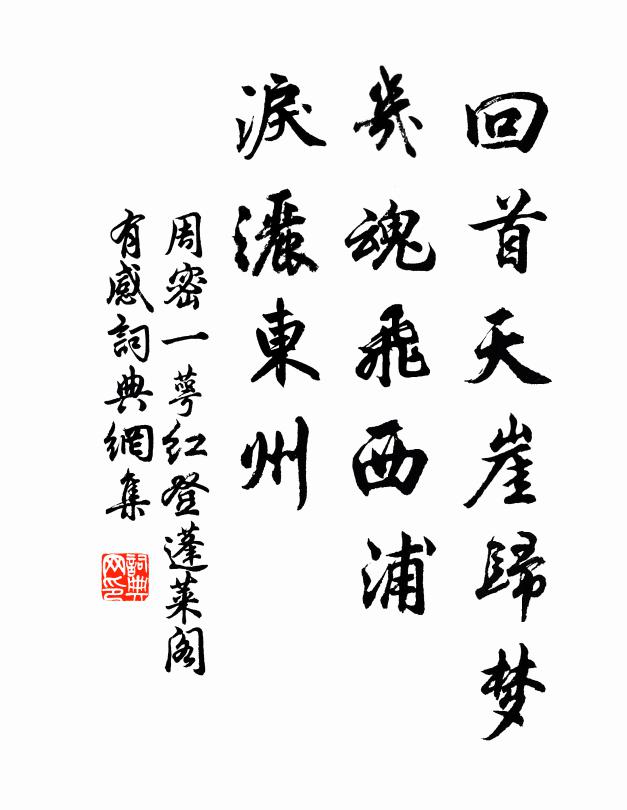 回首天崖歸梦
幾魂飛西浦
淚灑東州
周密一萼紅登蓬萊阁
有感詞典網集
詞典網印